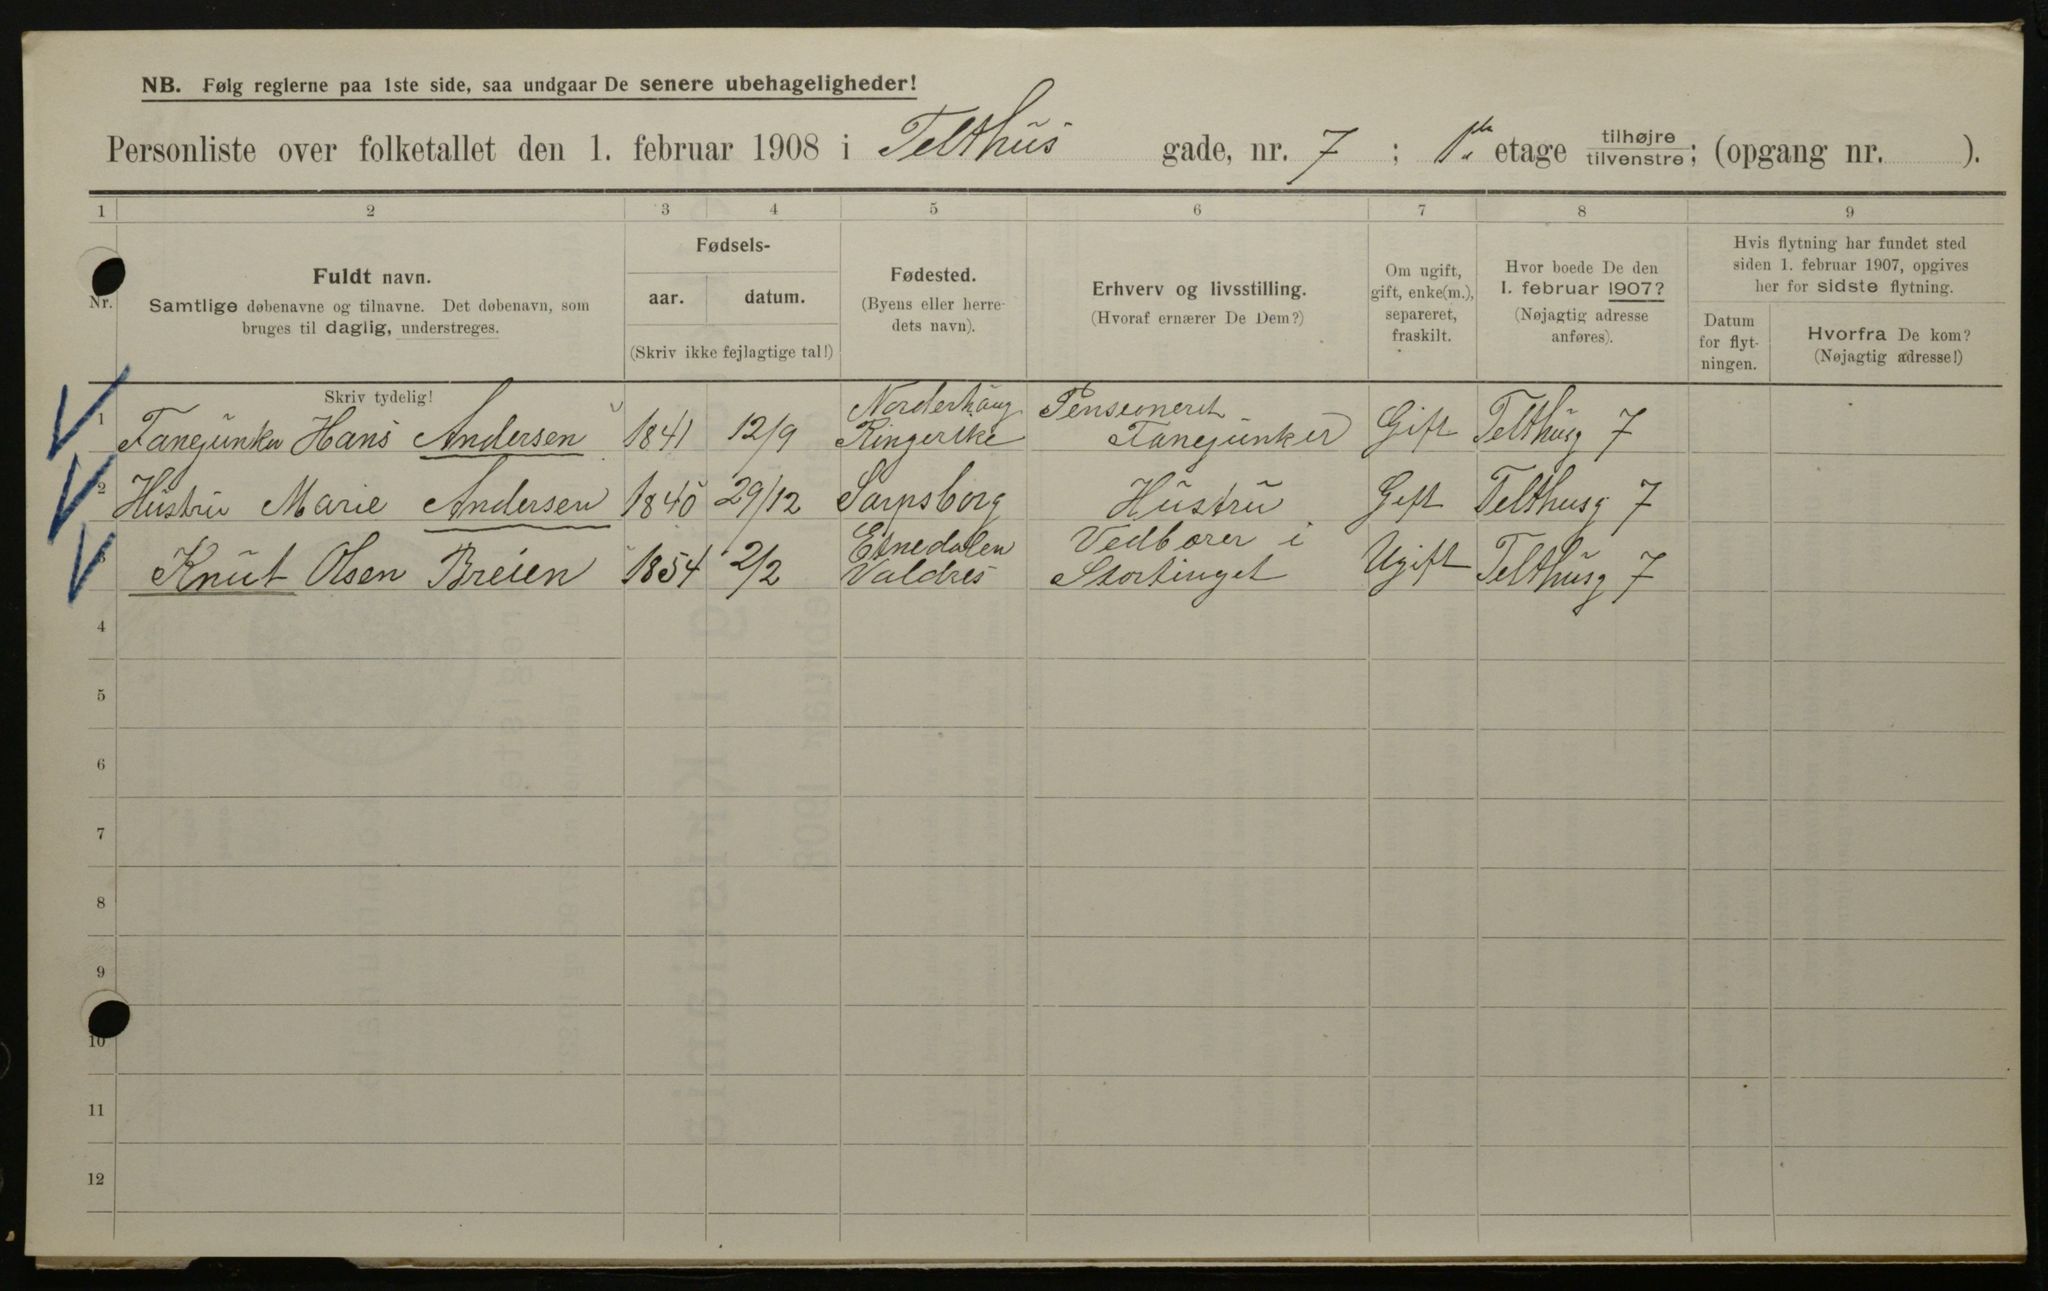 NB. Følg reglerne paa 1ste side, saa undgaar De senere ubehageligheder!
Personliste over folketallet den 1. februar 1908 i Telthus gade, nr. 7 ; 1ste etage tilhøjre/tilvenstre; (opgang nr. ).
1 2 3 4 5 6 7 8 9
Nr.
Fuldt navn.
Samtlige døbenavne og tilnavne. Det døbenavn, som
bruges til daglig, understreges.
Fødsels-
aar. datum.
(Skriv ikke fejlagtige tal!)
Fødested.
(Byens eller herre-
dets navn).
Erhverv og livsstilling.
(Hvoraf ernærer De Dem?)
Om ugift,
gift, enke(m.),
separeret,
fraskilt.
Hvor boede De den
1. februar 1907?
(Nøjagtig adresse
anføres).
Hvis flytning har fundet sted
siden 1. februar 1907, opgives
her for sidste flytning.
Datum
for flyt-
ningen.
Hvorfra De kom?
(Nøjagtig adresse!)
Skriv tydelig!
1 Fanejunker Hans Andersen 1841 12/9 Norderhaug Ringerike Pensioneret Fanejunker Gift Telthusg 7
2 Hustru Marie Andersen 1840 29/12 Sarpsborg Hustru Gift Telthusg 7
3 Knut Olsen Breien 1854 2/2 Etnedalen Valdres Vedbærer i Stortinget Ugift Telthusg 7
4
5
6
7
8
9
10
11
12